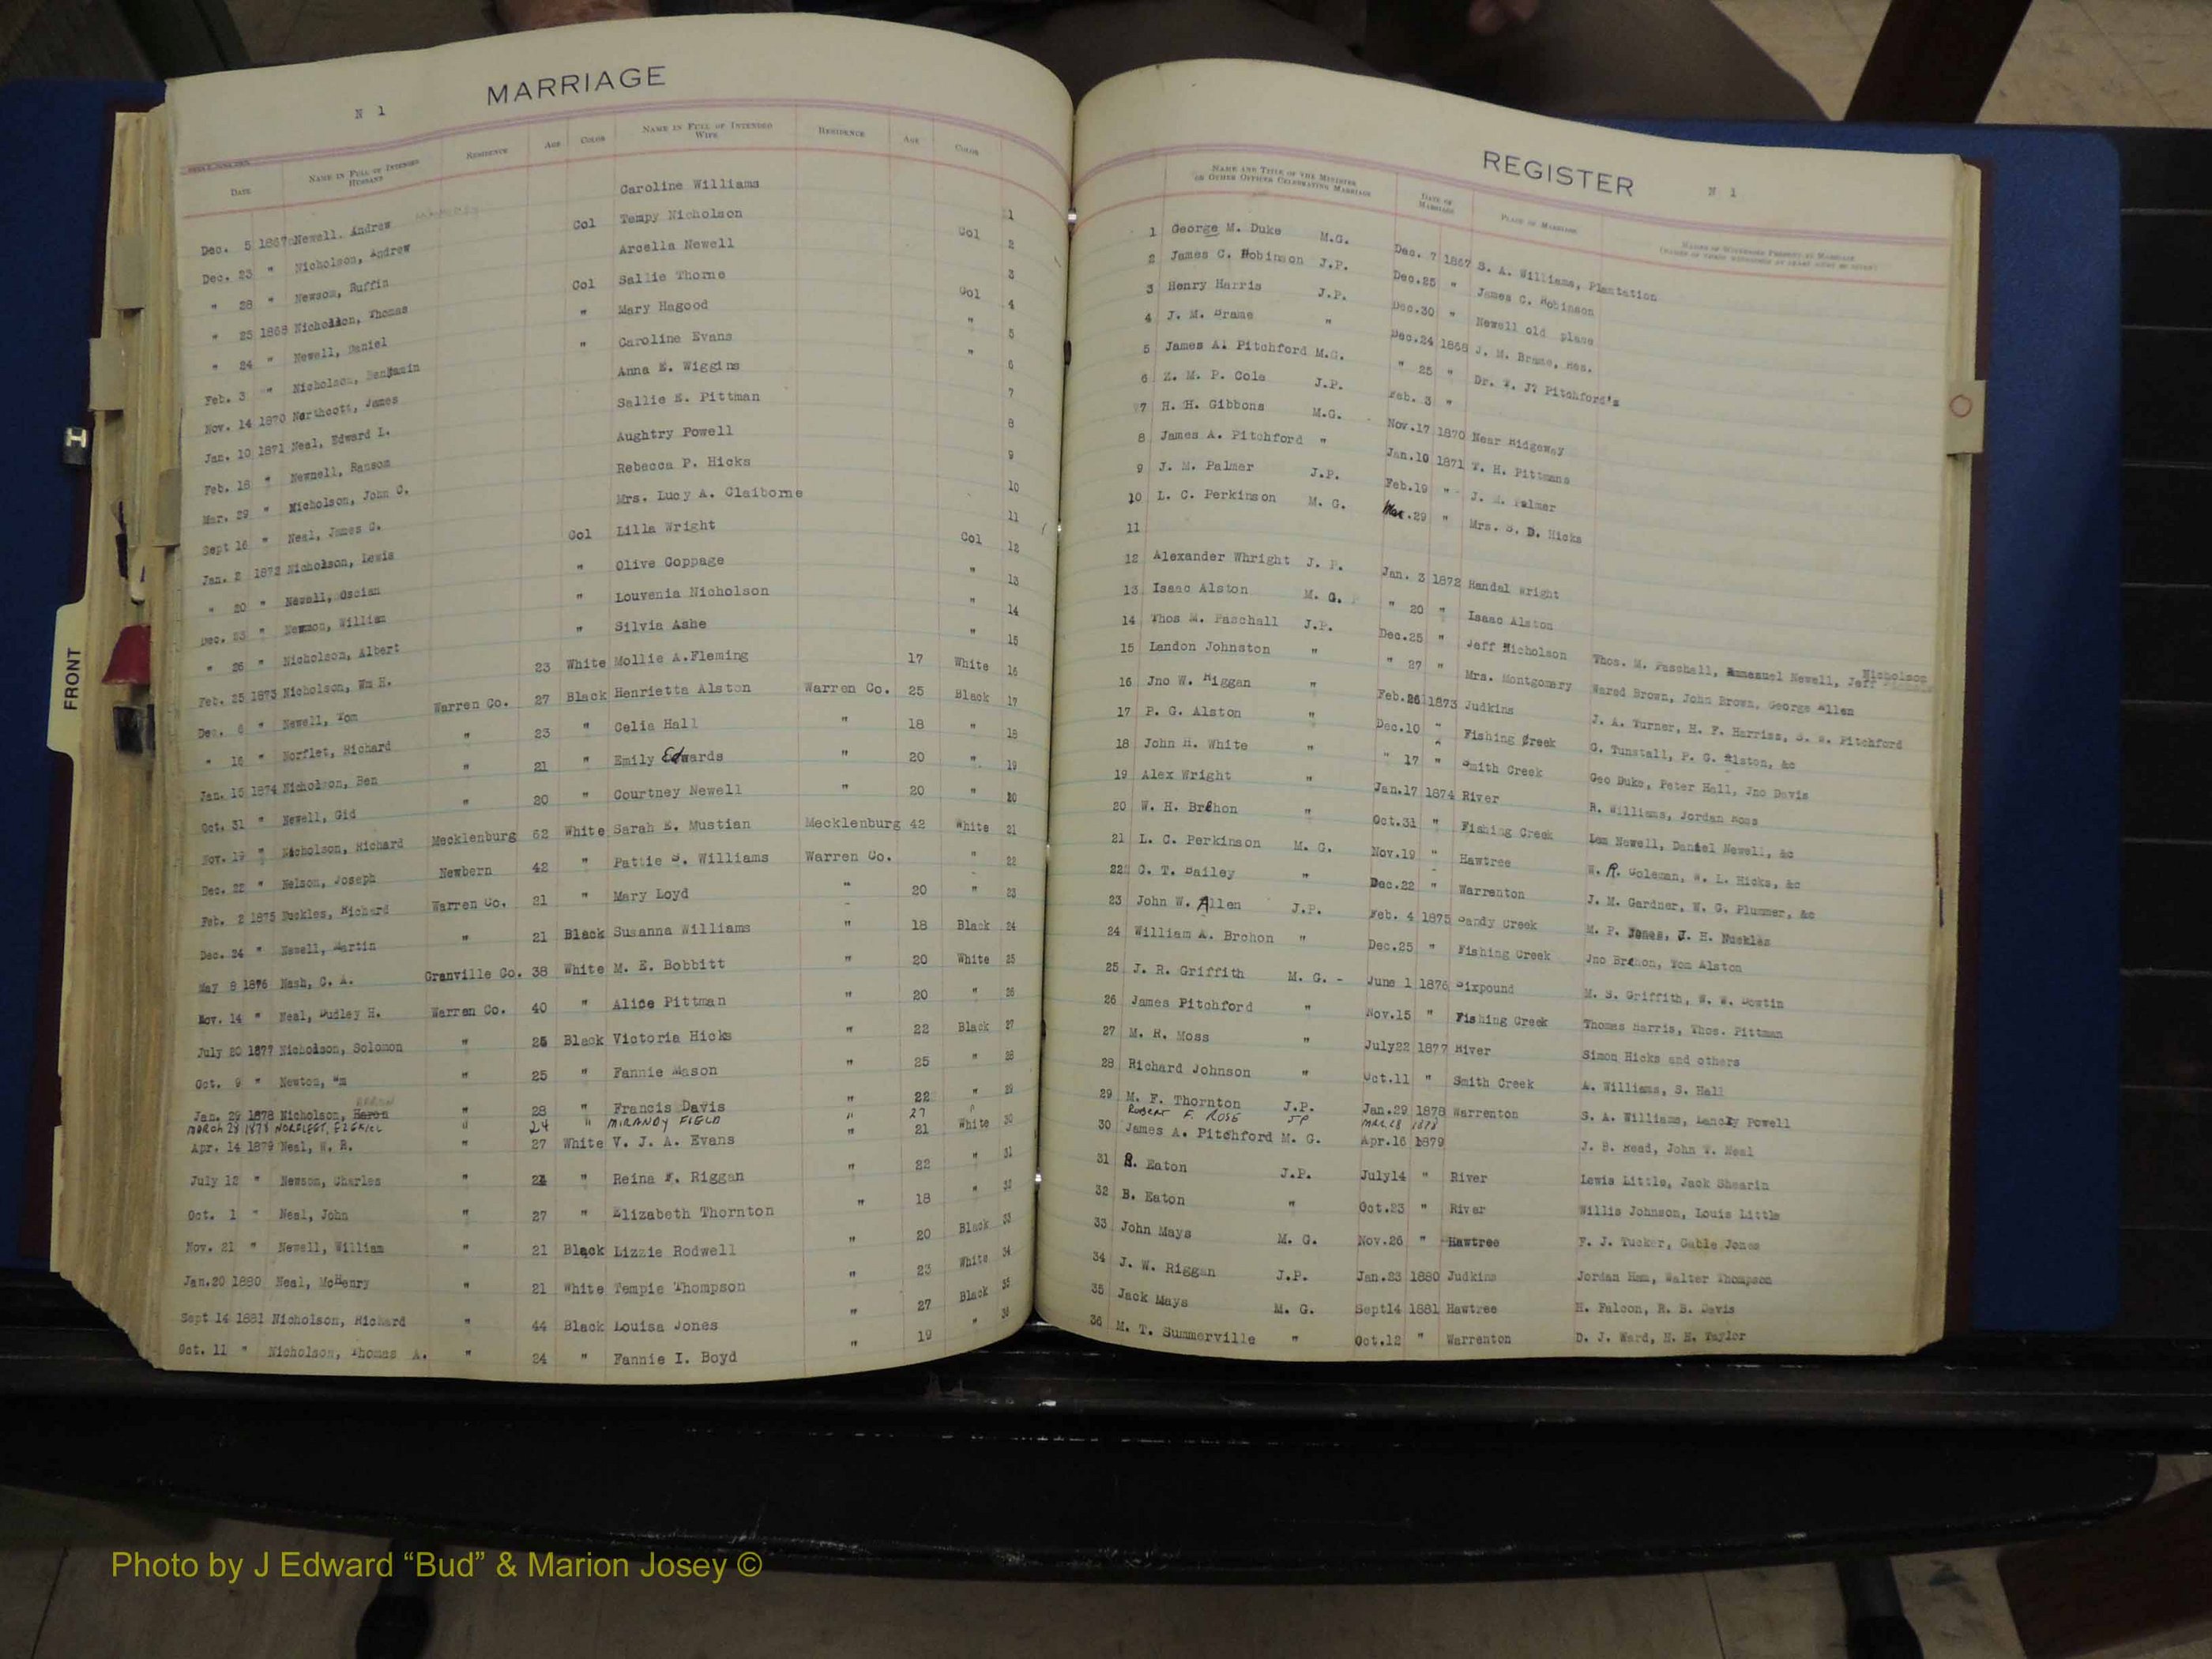 MARRIAGE
N 1
DATE
NAME IN FULL OF INTENDED HUSBAND
RESIDENCE
AGE
COLOR
NAME IN FULL OF INTENDED WIFE
RESIDENCE
AGE
COLOR
Dec. 5 1867 Newell, Andrew Caroline Williams 1
Dec. 23 " Nicholson, Andrew Col Tempy Nicholson Col 2
" 28 " Newsom, Ruffin Arcella Newell 3
" 23 1868 Nicholson, Thomas Col Sallie Thorne Col 4
" 24 " Newell, Daniel " Mary Hagood " 5
Feb. 3 " Nicholson, Benjamin " Caroline Evans " 6
Nov. 14 1870 Northcott, James Anna E. Wiggins 7
Jan. 10 1871 Neal, Edward L. Sallie E. Pittman 8
Feb. 18 " Newnell, Ransom Aughtry Powell 9
Mar. 29 " Nicholson, John C. Rebecca P. Hicks 10
Sept 16 " Neal, James G. Mrs. Lucy A. Claiborne 11
Jan. 2 1872 Nicholson, Lewis Col Lilla Wright Col 12
" 20 " Newell, Oscian " Olive Coppage " 13
Dec. 23 " Newmon, William " Louvenia Nicholson " 14
" 26 " Nicholson, Albert " Silvia Ashe " 15
Feb. 25 1873 Nicholson, Wm H. 23 White Mollie A.Fleming 17 White 16
Dec. 6 " Newell, Tom Warren Co. 27 Black Henrietta Alston Warren Co. 25 Black 17
" 16 " Norflet, Richard " 23 " Celia Hall " 18 " 18
Jan. 15 1874 Nicholson, Ben " 21 " Emily Edwards " 20 " 19
Oct. 31 " Newell, Gid " 20 " Courtney Newell " 20 " 20
Nov. 19 " Nicholson, Richard Mecklenburg 62 White Sarah E. Mustian Mecklenburg 42 White 21
Dec. 22 " Nelson, Joseph Newbern 42 " Pattie S. Williams Warren Co. " 22
Feb. 2 1875 Nuckles, Richard Warren Co. 21 " Mary Loyd " 20 " 23
Dec. 24 " Newell, Martin " 21 Black Susanna Williams " 18 Black 24
May 8 1876 Nash, C. A. Granville Co. 38 White M. E. Bobbitt " 20 White 25
Nov. 14 " Neal, Dudley H. Warren Co. 40 " Alice Pittman " 20 " 26
July 20 1877 Nicholson, Solomon " 26 Black Victoria Hicks " 22 Black 27
Oct. 9 " Newton, Wm " 25 " Fannie Mason " 25 " 28
Jan. 29 1878 Nicholson, Haron " 28 " Francis Davis " 22 " 29
MARCH 28 1878 NORFLEET, EZEKIEL " 24 " MIRANDY FIELD " 27 "
Apr. 14 1879 Neal, W. R. " 27 White V. J. A. Evans " 21 White 30
July 12 " Newson, Charles " 24 " Reina F. Riggan " 22 " 31
Oct. 1 " Neal, John " 27 " Elizabeth Thornton " 18 " 32
Nov. 21 " Newell, William " 21 Black Lizzie Rodwell " 20 Black 33
Jan.20 1880 Neal, McHenry " 21 White Tempie Thompson " 23 White 34
Sept 14 1881 Nicholson, Richard " 44 Black Louisa Jones " 27 Black 35
Oct. 11 " Nicholson, Thomas A. " 24 " Fannie I. Boyd " 19 " 36
REGISTER
N 1
NAME AND TITLE OF THE MINISTER OR OTHER OFFICER CELEBRATING MARRIAGE
DATE OF MARRIAGE
PLACE OF MARRIAGE
1 George M. Duke M.G. Dec. 7 1867 S. A. Williams, Plantation
2 James C. Robinson J.P. Dec.25 " James C. Robinson
3 Henry Harris J.P. Dec.30 " Newell old place
4 J. M. Brame " Dec.24 1868 J. M. Brame, Res.
5 James A. Pitchford M.G. " 25 " Dr. T. J? Pitchford's
6 Z. M. P. Cole J.P. Feb. 3 "
7 H. H. Gibbons M.G. Nov.17 1870 Near Ridgeway
8 James A. Pitchford " Jan.10 1871 T. H. Pittmans
9 J. M. Palmer J.P. Feb.19 " J. M. Palmer
10 L. C. Perkinson M. G. Mar.29 " Mrs. S. D. Hicks
11
12 Alexander Whright J. P. Jan. 3 1872 Randal Wright
13 Isaac Alston M. G. " 20 " Isaac Alston
14 Thos M. Paschall J.P. Dec.25 " Jeff Nicholson Thos. M. Paschall, Emmanuel Newell, Jeff Nicholson
15 Landon Johnston " " 27 " Mrs. Montgomary Wared Brown, John Brown, George Allen
16 Jno W. Riggan " Feb.26 1873 Judkins J. A. Turner, H. F. Harriss, S. W. Pitchford
17 P. G. Alston " Dec.10 " Fishing Creek G. Tunstall, P. G. Alston, &c
18 John H. White " " 17 " Smith Creek Geo Duke, Peter Hall, Jno Davis
19 Alex Wright " Jan.17 1874 River R. Williams, Jordan Ross
20 W. H. Brehon " Oct.31 " Fishing Creek Lem Newell, Daniel Newell, &c
21 L. C. Perkinson M. G. Nov.19 " Hawtree W. R. Coleman, W. L. Hicks, &c
22 C. T. Bailey " Dec.22 " Warrenton J. M. Gardner, W. G. Plummer, &c
23 John W. Allen J.P. Feb. 4 1875 Sandy Creek M. P. Jones, J. H. Nuckles
24 William A. Brehon " Dec.25 " Fishing Creek Jno Brehon, Tom Alston
25 J. R. Griffith M. G. - June 1 1876 Sixpound M. S. Griffith, W. W. Dowtin
26 James Pitchford " Nov.15 " Fishing Creek Thomas Harris, Thos. Pittman
27 M. R. Moss " July22 1877 River Simon Hicks and others
28 Richard Johnson " Oct.11 " Smith Creek A. Williams, S. Hall
29 M. F. Thornton J.P. Jan.29 1878 Warrenton S. A. Williams, Powell
ROBERT F. ROSE JP MAR.28 1878
30 James A. Pitchford M. G. Apr.16 1879 J. B. Read, John T. Neal
31 B. Eaton J.P. July14 " River Lewis Little, Jack Shearin
32 B. Eaton " Oct.23 " River Willis Johnson, Louis Little
33 John Mays M. G. Nov.26 " Hawtree F. J. Tucker, Cable Jones
34 J. W. Riggan J.P. Jan.23 1880 Judkins Jordan Ham, Walter Thompson
35 Jack Mays M. G. Sept14 1881 Hawtree H. Falcon, R. B. Davis
36 M. T. Summerville " Oct.12 " Warrenton D. J. Ward, H. H. Taylor
FRONT
Photo by J Edward “Bud” & Marion Josey ©